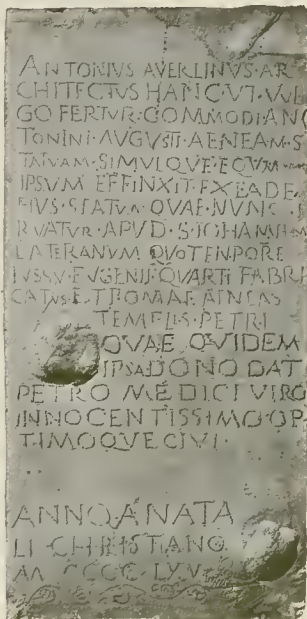 ANTONIVS·AVERLINVS·AR
CHITECTVS HANC·VT·VVL
GO FERTVR·COMMODI·AN
TONINI·AVGVSTI·AENEAM·S
TATVAM·SIMVLQVE·EQVVM
IPSVM EFFINXIT·EX EADE
EIVS·STATVA QVAE·NVNC·S
RVATVR·APVD·S·IOHANNEM
LATERANVM QVO TENPORE
IVSSV·EVGENII·QVARTI FABRI
CATVS·E·T ROMAE AENEAS
TEMPLI·S·PETRI
QVAE QVIDEM
IPSA DONO DAT
PETRO MEDICI VIRO
INNOCENTISSIMO OP
TIMOQVE CIVI·
ANNO A NATA
LI CHRISTIANO